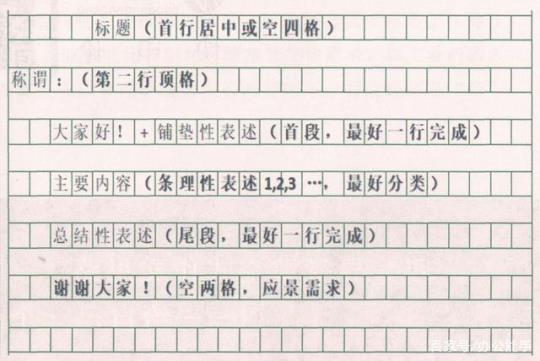 标题（首行居中或空四格）
称谓：（第二行顶格）
大家好！+铺垫性表述（首段，最好一行完成）
主要内容（条理性表述1,2,3…，最好分类）
总结性表述（尾段，最好一行完成）
谢谢大家！（空两格，应景需求）